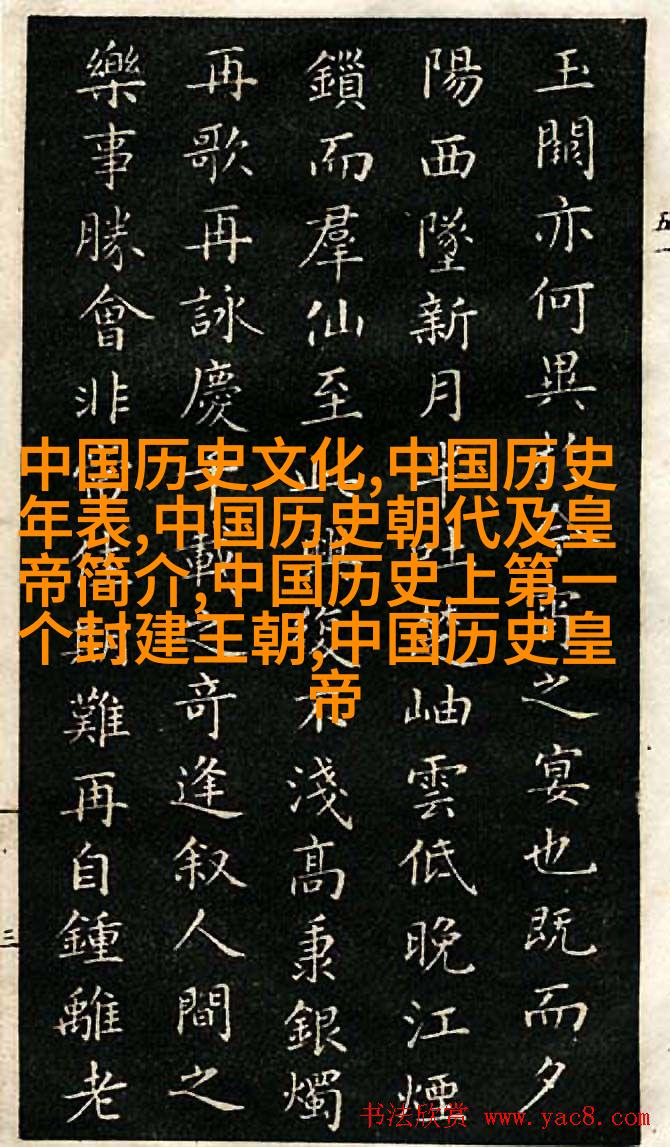 玉闕亦何異於之宴也既而夕
陽西墜新月半吐岫雲低晚江煙
鎖而羣仙至此興復不淺高秉銀燭
再歌再詠慶千載之奇逢叙人間之
樂事勝會非難再自鍾離老
中国历史文化,中国历史
年表,中国历史朝代及皇
帝简介,中国历史上第一
个封建王朝,中国历史皇
帝
三
书法欣赏 www.yac8.com